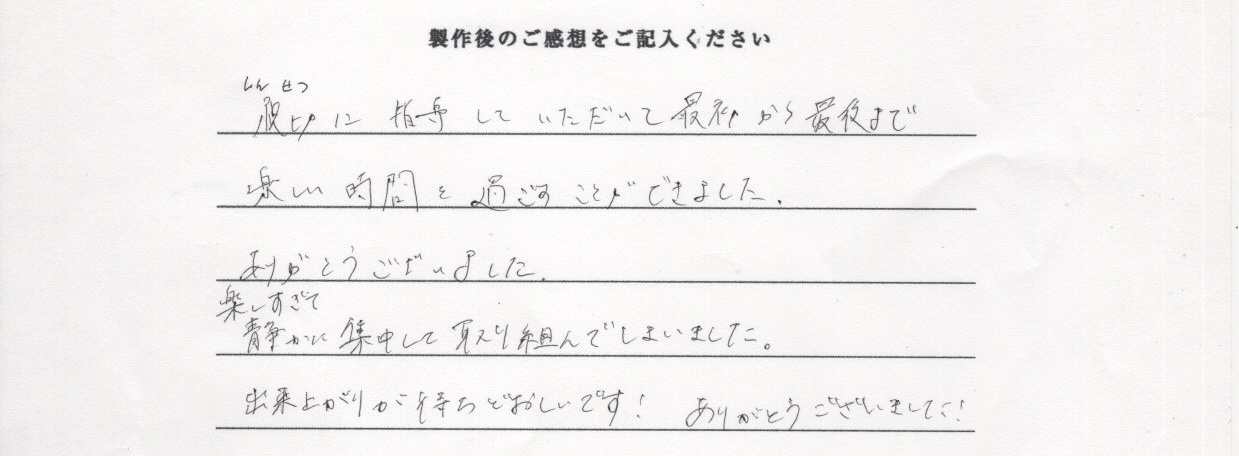 製作後のご感想をご記入ください
しんせつ
親切に指導していただいて最初から最後まで
楽しい時間を過ごすことができました。
ありがとうございました。
楽しすぎて
静かに集中して取り組んでしまいました。
出来上がりが待ちどおしいです! ありがとうございました!